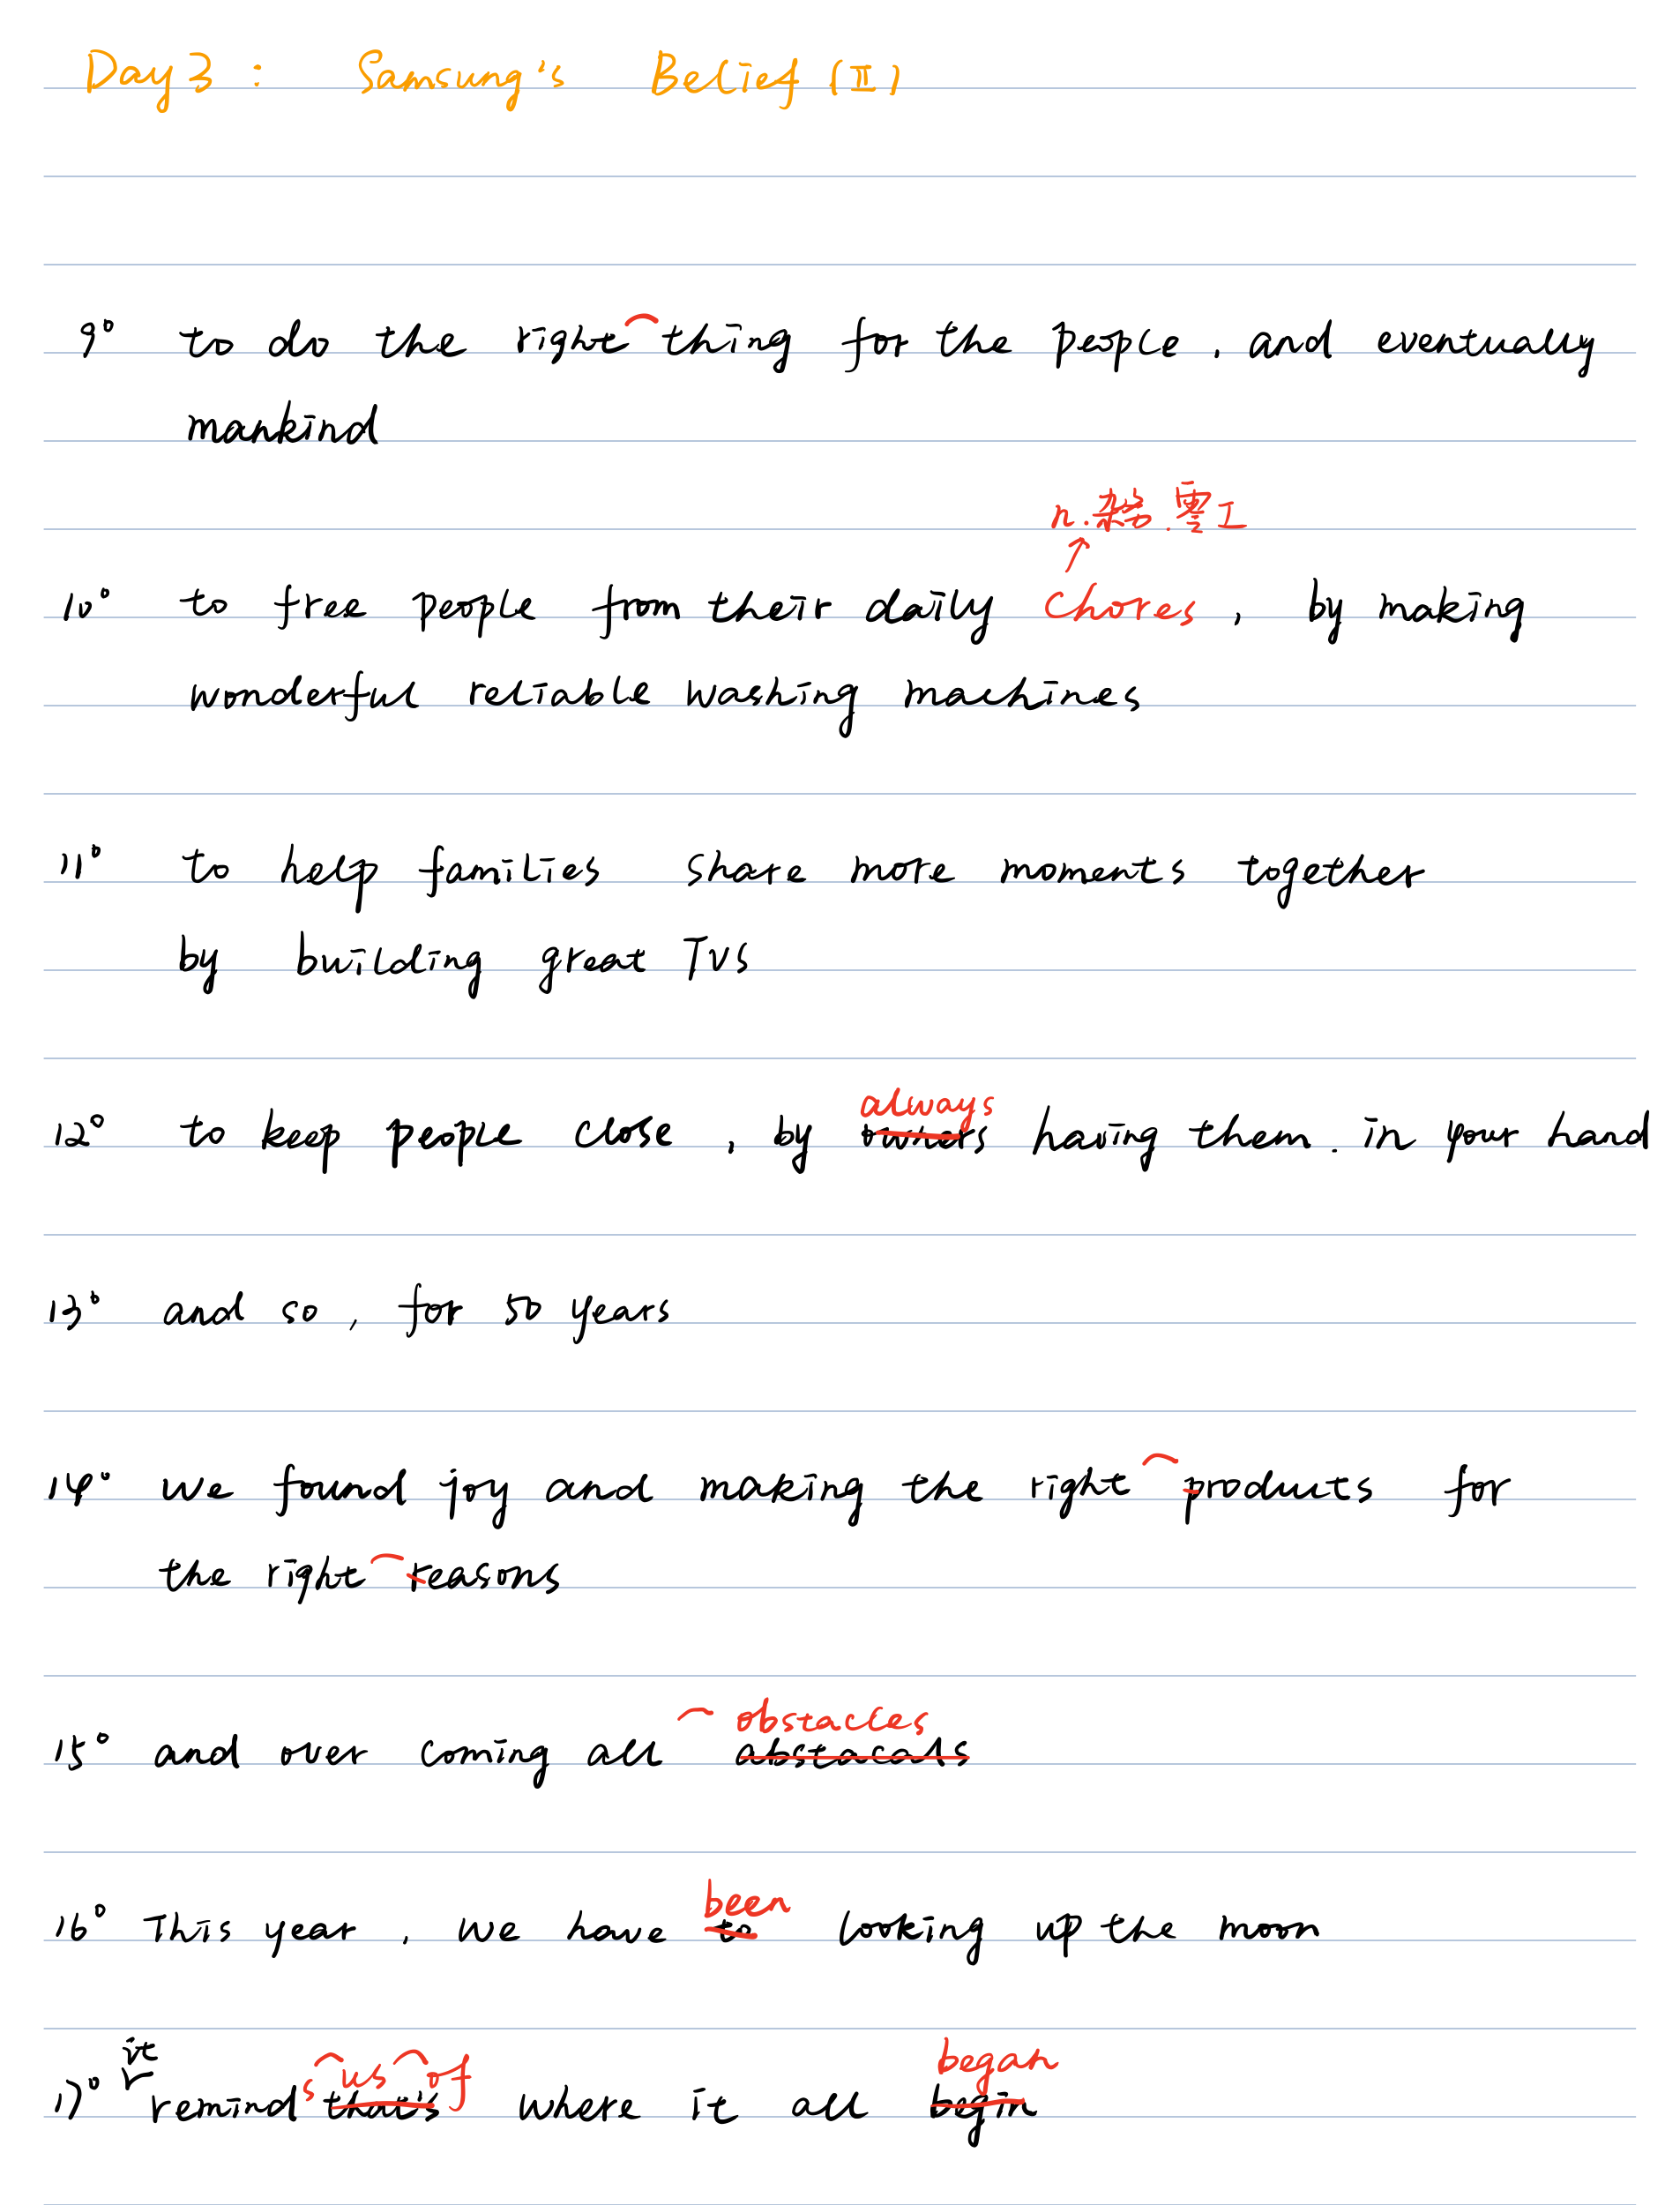 Day 3 : Samsung's Belief (II)
9° to do the right thing for the people, and eventually
mankind
n. 杂務. 零工
10° to free people from their daily chores, by making
wonderful reliable washing machines
11° to help families share more moments together
by building great TVs
always
12° to keep people close, by owners having them. in your hand
13° and so, for 50 years
14° we found joy and making the right products for
the right reasons
obstacles
15° and over coming all abstacals
been
16° This year, we have to looking up the moon
it s us of began
17° remind that's where it all begin